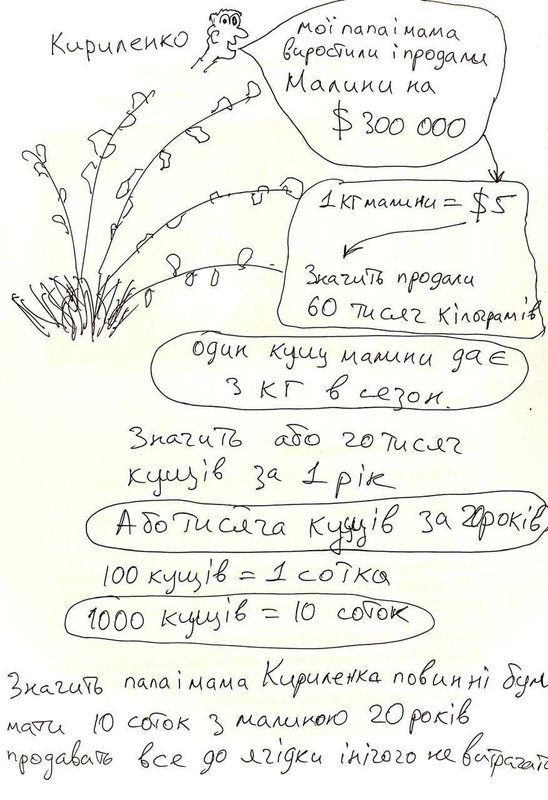 Кириленко
мої папа і мама
виростили і продали
Малини на
$ 300 000
1 кг малини = $5
Значить продали
60 тисяч кілограмів
один кущ малини дає
3 кг в сезон.
Значить або 20 тисяч
кущів за 1 рік
Або тисяча кущів за 20 років
100 кущів = 1 сотка
1000 кущів = 10 соток
Значить папа і мама Кириленка повинні були
мати 10 соток з малиною 20 років
продавать все до ягідки і нічого не витрачать